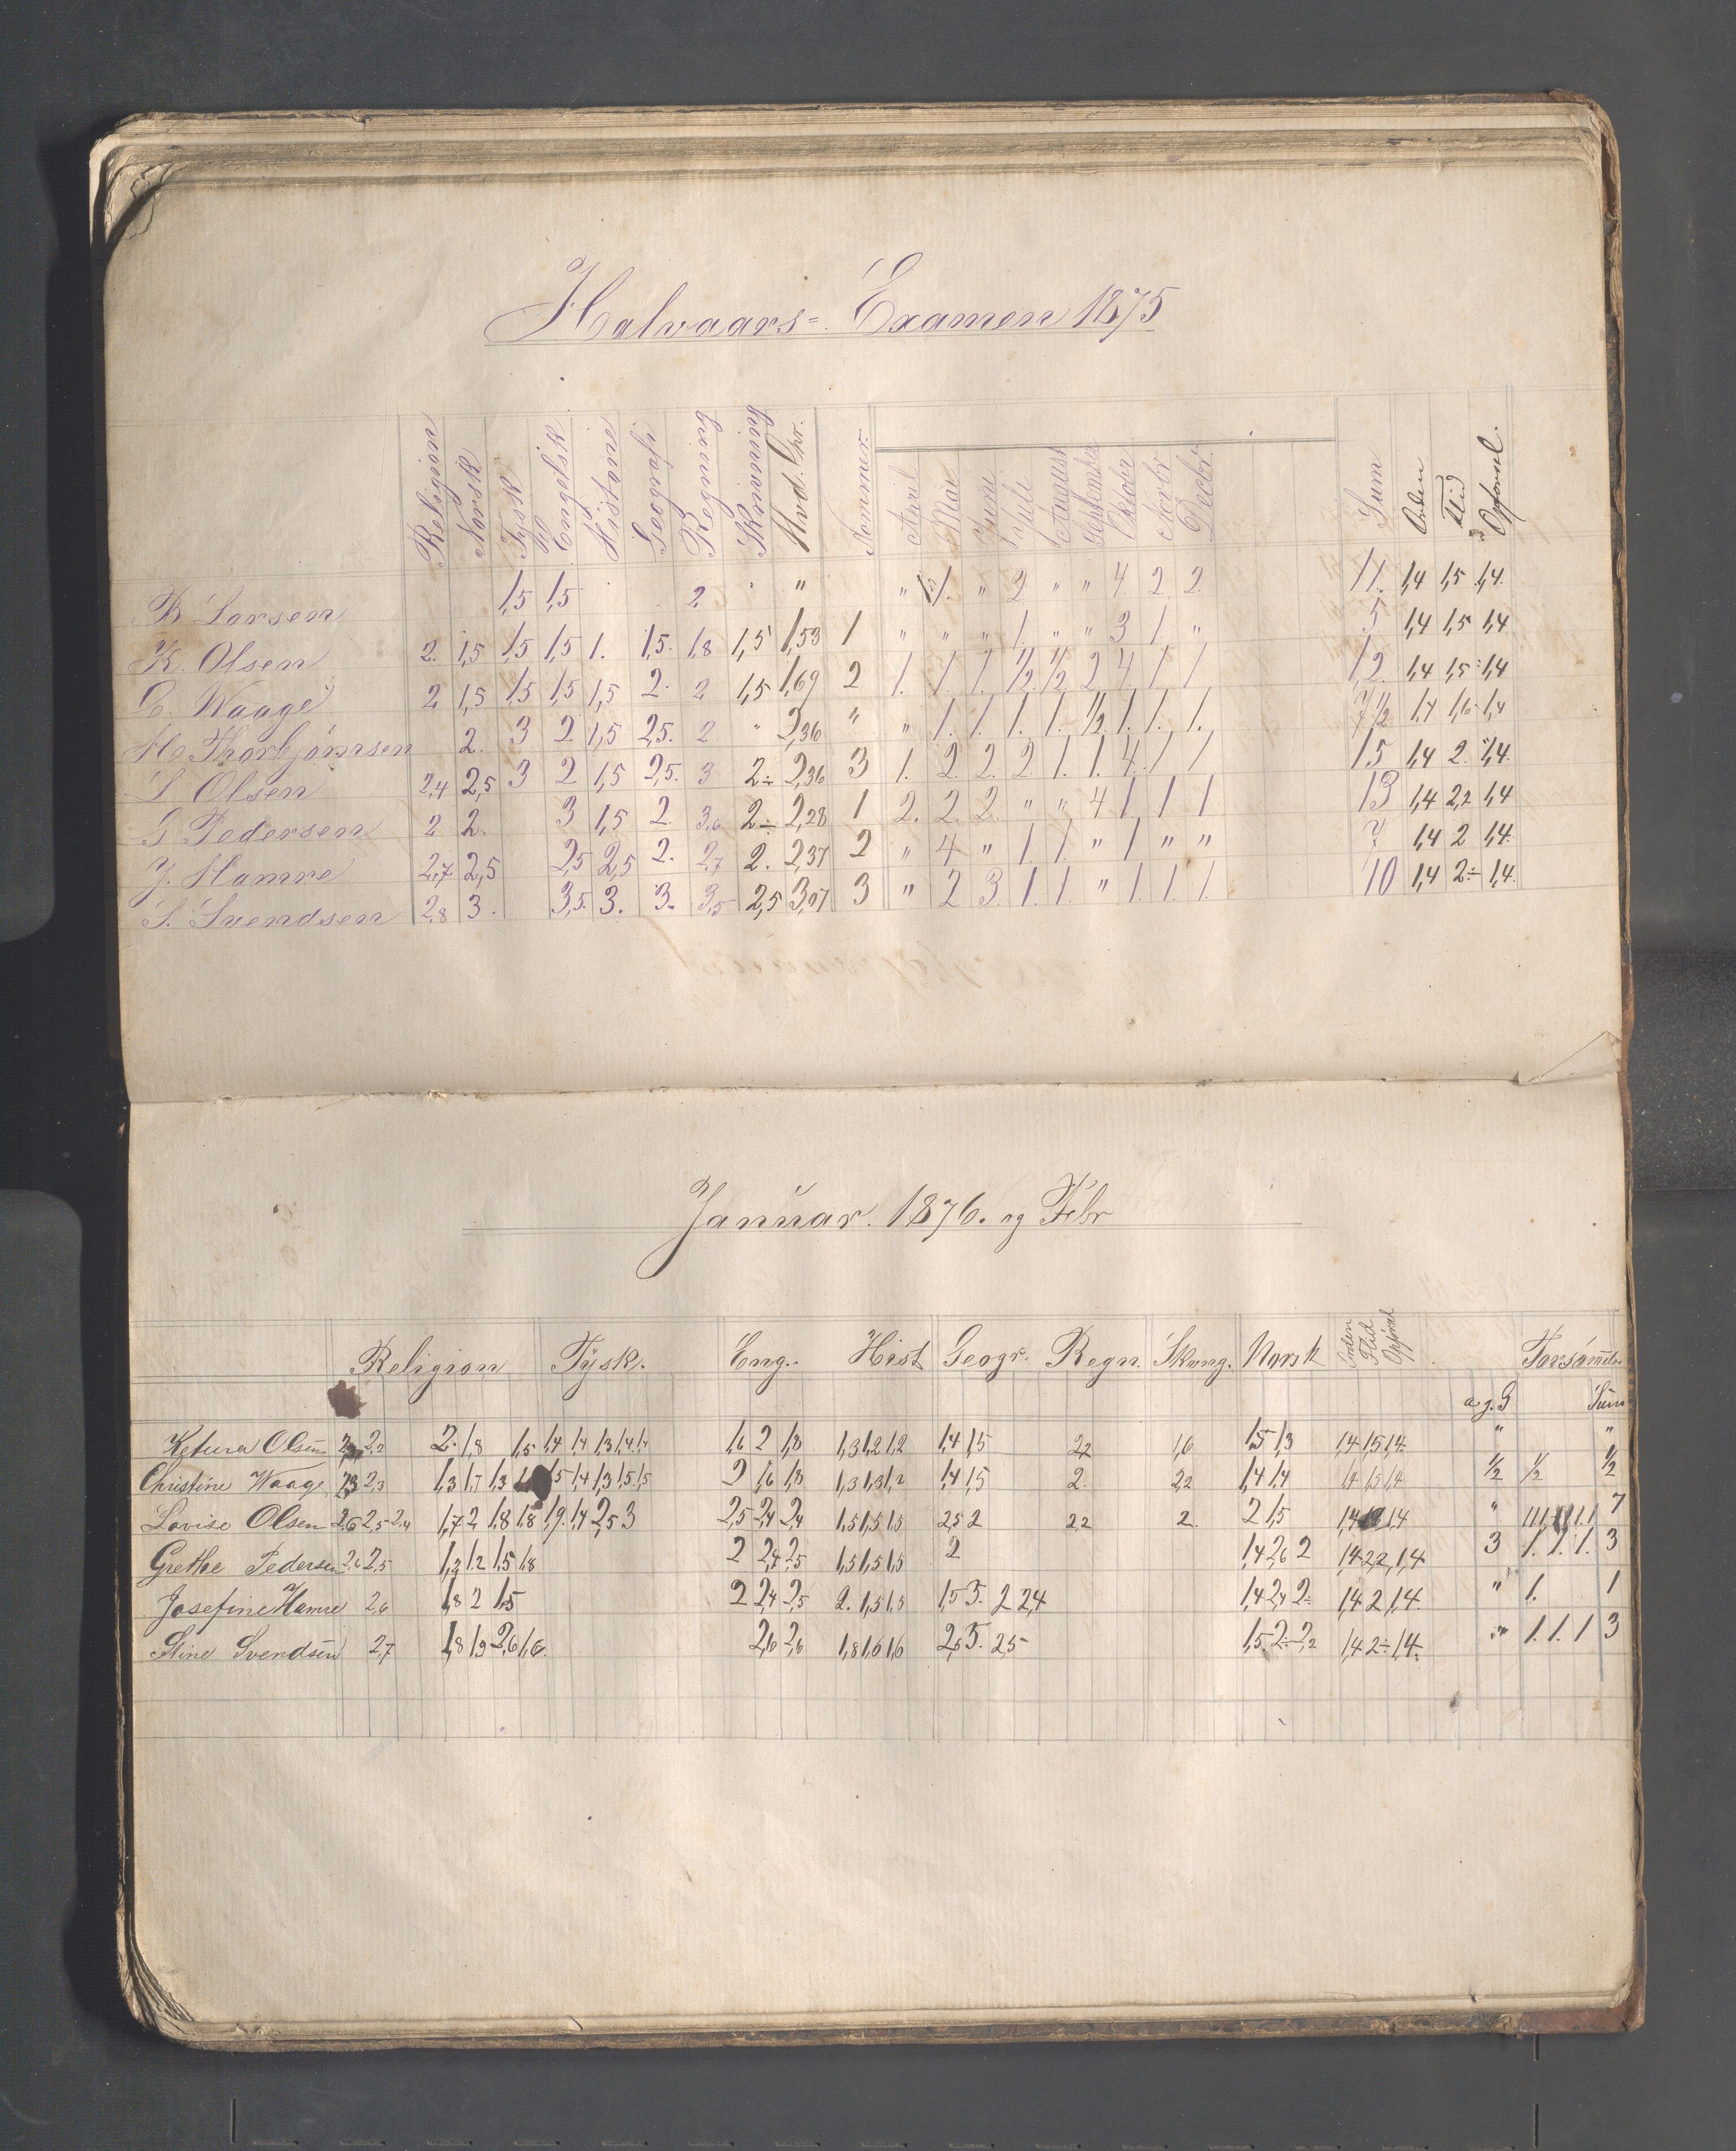 Halvaars=Examen 1875
Religion Norsk Tysk Engelsk Historie Geografi Regning Skrivning Hvd. Chr. Nommer. April Mai Juni Juli August September Oktobr Novbr Decbr. Sum Orden Flid Opførsel.
K Larsen 1,5 1,5 2 " " 1. " 2 " " 4. 2. 2. 11. 1,4 1,5 1,4.
K. Olsen 2. 1,5 1,5 1,5 1. 1,5. 1,8 1,5 1,53 1 " " " 1. " " 3 1. " 5 1,4 1,5 1,4
C. Waage 2 1,5 1,5 1,5 1,5 2. 2 1,5 1,69 2 1. 1. 1. 1/2 1/2 2 4. 1 1 12. 1,4 1,5 1,4
H. Thorbjörnsen 2. 3 2 1,5 2,5. 2 " 2,36 " " 1. 1. 1. 1. 1/2 1. 1. 1. 7 1/2 1,4 1,6 1,4
L Olsen 2,4 2,5 3 2 1,5 2,5. 3 2÷ 2,36 3 1. 2. 2. 2. 1. 1. 4. 1 1 15 1,4 2. 1,4.
G Pedersen 2 2. 3 1,5 2. 3,6 2÷ 2,28 1 2. 2. 2. " " 4 1 1 1 13 1,4 2,2 1,4
J. Hamre 2,7 2,5 2,5 2,5 2. 2,7 2. 2,37 2 " 4 " 1. 1. " 1 " " 7 1,4 2 1,4.
S. Svendsen 2,8 3. 3,5. 3. 3. 3,5 2,5 3,07 3 " 2 3. 1. 1. " 1. 1. 1. 10 1,4 2÷ 1,4.
Januar. 1876. og Febr
Religion Tysk. Eng. Hist Geogr. Regn. Skrvng. Norsk Orden Flid Opførsel Forsömmelse
a. g. G Sum
Ketura Olsen 2,2 2. 1,8 1,5 1,4 1,4 1,3 1,4 1,4 1,6 2 1,8 1,3 1,2 1,2 1,4 1,5 2,2 1,6 1,5 1,3 1,4 1,5 1,4. " "
Christine Waage 2,3 1,3 1,7 1,3 1,5 1,4 1,3 1,5 1,5 2 1,6 1,8 1,3 1,3 1,2 1,4 1,5 2. 2,2 1,4 1,4 1,4 1,5 1,4 1/2 1/2 1/2
Lovise Olsen 2,6 2,5 2,4 1,7 2 1,8 1,8 1,9. 1,4 2,5 3 2,5 2,4 2,4 1,5 1,5 1,5 2,5 2 2,2 2. 2 1,5 1,4 1,4 " 7
Grethe Pedersen 2,6 2,5 1,2 1,2 1,5 1,8 2 2,4 2,5 1,5 1,5 1,5 2 1,4 2,6 2 1,4 2,2 1,4 3 1. 1. 1. 3
Josefine Hamre 2,6 1,8 2 1,5 2 2,4 2,5 2. 1,5 1,5 1,5 3. 2 2,4 1,4 2,4 2÷ 1,4 2 1,4. " 1. 1
Stine Svendsen 2,7 1,8 1,9 2,6 1,6. 2,6 2,6 1,8 1,6 1,6 2,5 3. 2,5 1,5. 2÷ 2,2 1,4 2÷ 1,4. " 1. 1. 1 3